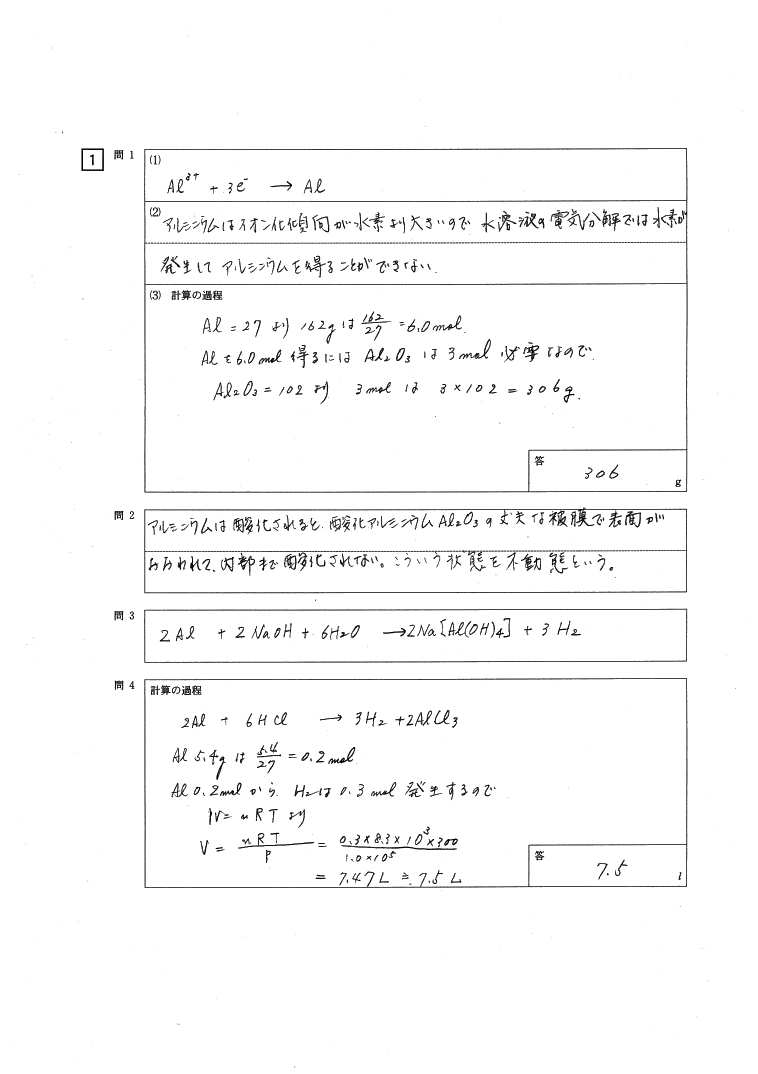 1
問 1
(1)
Al³⁺ + 3e⁻ → Al
(2) アルミニウムはイオン化傾向が水素より大きいので 水溶液の電気分解では水素が
発生して アルミニウムを得ることができない.
(3) 計算の過程
Al = 27 より 162g は 162/27 = 6.0 mol.
Al を 6.0 mol 得るには Al₂O₃ は 3 mol 必要なので.
Al₂O₃ = 102 より 3 mol は 3 × 102 = 306 g.
答
306 g
問 2
アルミニウムは酸化されると、酸化アルミニウム Al₂O₃ の丈夫な被膜で表面が
おおわれて、内部まで酸化されない。こういう状態を不動態という。
問 3
2Al + 2NaOH + 6H₂O → 2Na[Al(OH)₄] + 3H₂
問 4
計算の過程
2Al + 6HCl → 3H₂ + 2AlCl₃
Al 5.4g は 5.4/27 = 0.2 mol
Al 0.2mol から H₂は 0.3 mol 発生するので
PV = nRT より
V = nRT/P = 0.3 × 8.3 × 10³ × 300/1.0 × 10⁵
= 7.47 L ≒ 7.5 L
答
7.5 l